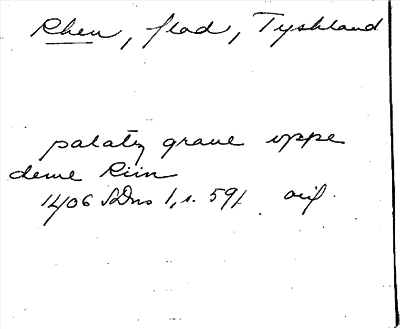 Rhen, flod, Tyskland
palatz graue vppe
deme Riin
1406 SDns 1, s. 591 orig.